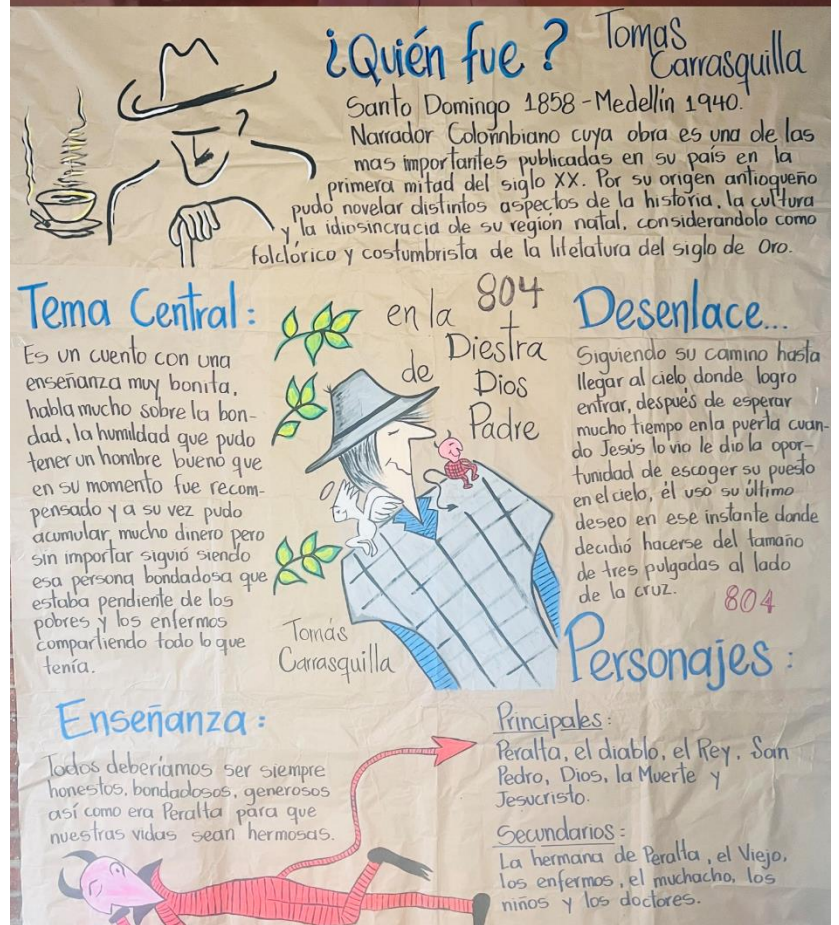 ¿Quién fue? Tomas
Carrasquilla
Santo Domingo 1858 - Medellín 1940.
Narrador Colombiano cuya obra es una de las
mas importantes publicadas en su país en la
primera mitad del siglo XX. Por su origen antioqueño
pudo novelar distintos aspectos de la historia, la cultura
y la idiosincracia de su region natal, considerandolo como
folclórico y costumbrista de la litelatura del siglo de Oro.
Tema Central:
Es un cuento con una
enseñanza muy bonita,
habla mucho sobre la bon-
dad, la humildad que pudo
tener un hombre bueno que
en su momento fue recom-
pensado y a su vez pudo
acumular mucho dinero pero
sin importar siguió siendo
esa persona bondadosa que
estaba pendiente de los
pobres y los enfermos
compartiendo todo lo que
tenía.
804
en la
Diestra
de Dios
Padre
Tomás
Carrasquilla
Desenlace...
Siguiendo su camino hasta
llegar al cielo donde logro
entrar, después de esperar
mucho tiempo en la puerta cuan-
do Jesús lo vio le dio la opor-
tunidad de escoger su puesto
en el cielo, él uso su último
deseo en ese instante donde
decidió hacerse del tamaño
de tres pulgadas al lado
de la cruz.
804
Enseñanza:
Todos deberíamos ser siempre
honestos, bondadosos, generosos
así como era Peralta para que
nuestras vidas sean hermosas.
Personajes:
Principales:
Peralta, el diablo, el Rey, San
Pedro, Dios, la Muerte y
Jesucristo.
Secundarios:
La hermana de Peralta, el Viejo,
los enfermos, el muchacho, los
niños y los doctores.